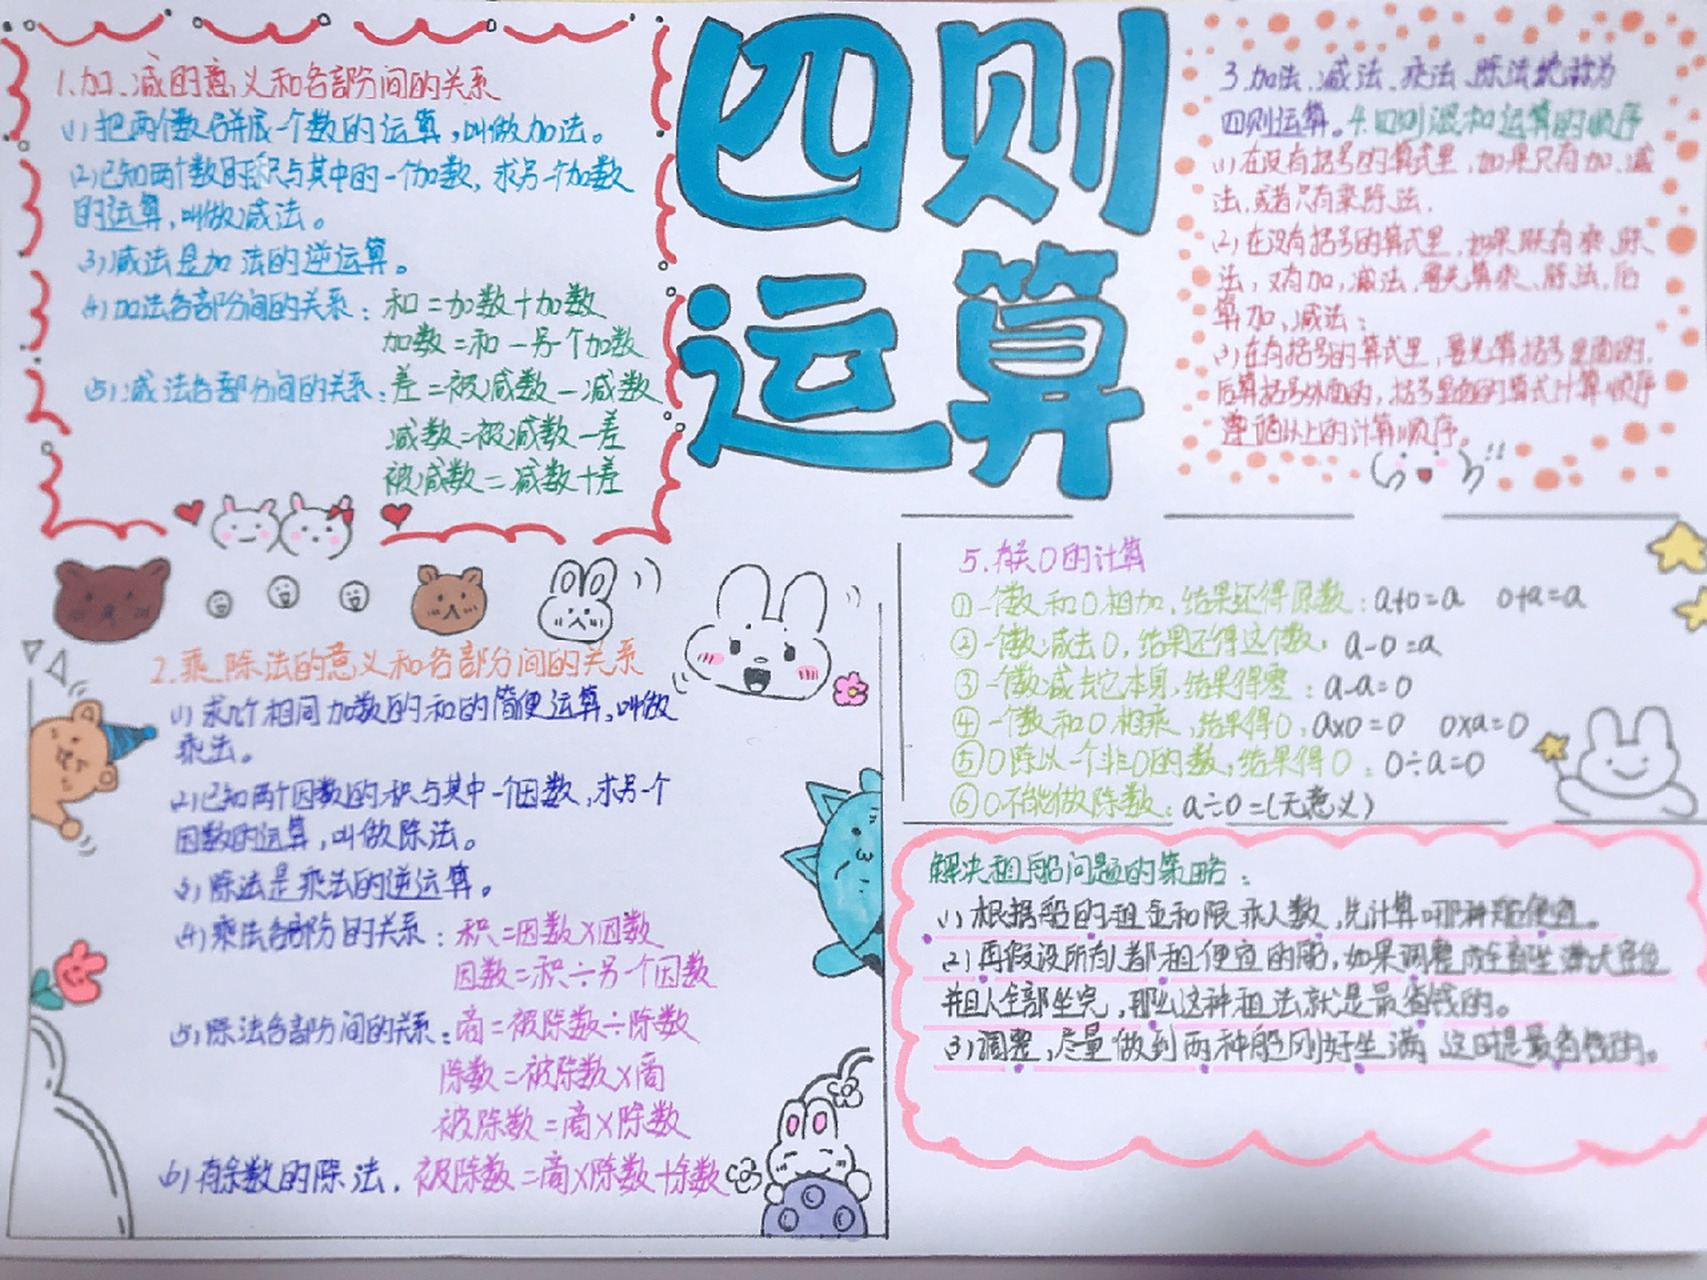 四则
运算
1.加、减的意义和各部分间的关系
(1)把两个数合并成一个数的运算,叫做加法。
(2)已知两个数的积与其中的一个加数,求另一个加数
的运算,叫做减法。
(3)减法是加法的逆运算。
(4)加法各部分间的关系:和=加数+加数
加数=和-另一个加数
(5)减法各部分间的关系:差=被减数-减数
减数=被减数-差
被减数=减数+差
2.乘、除法的意义和各部分间的关系
(1)求几个相同加数的和的简便运算,叫做
乘法。
(2)已知两个因数的积与其中一个因数,求另一个
因数的运算,叫做除法。
(3)除法是乘法的逆运算。
(4)乘法各部分的关系:积=因数×因数
因数=积÷另一个因数
(5)除法各部分间的关系:商=被除数÷除数
除数=被除数×商
被除数=商×除数
(6)有余数的除法,被除数=商×除数+余数
3.加法、减法、乘法、除法统称为
四则运算。4.四则混和运算的顺序
(1)在没有括号的算式里,如果只有加、减
法,或者只有乘除法,
(2)在没有括号的算式里,如果既有乘、除
法,又有加,减法,要先算乘、除法,后
算加、减法;
(3)在有括号的算式里,要先算括号里面的,
后算括号外面的,括号里面的算式计算顺序
遵循以上的计算顺序。
5.有关0的计算
①一个数和0相加,结果还得原数:a+0=a 0+a=a
②一个数减去0,结果还得这个数:a-0=a
③一个数减去它本身,结果得零:a-a=0
④一个数和0相乘,结果得0,a×0=0 0×a=0
⑤0除以一个非0的数,结果得0:0÷a=0
⑥0不能做除数:a÷0=(无意义)
解决租船问题的策略:
(1)根据船的租金和限乘人数,先计算哪种船便宜。
(2)再假设所有人都租便宜的船,如果调整 座位
并且人全部坐完,那么这种租法就是最省钱的。
(3)调整,尽量做到两种船刚好坐满,这时是最省钱的。